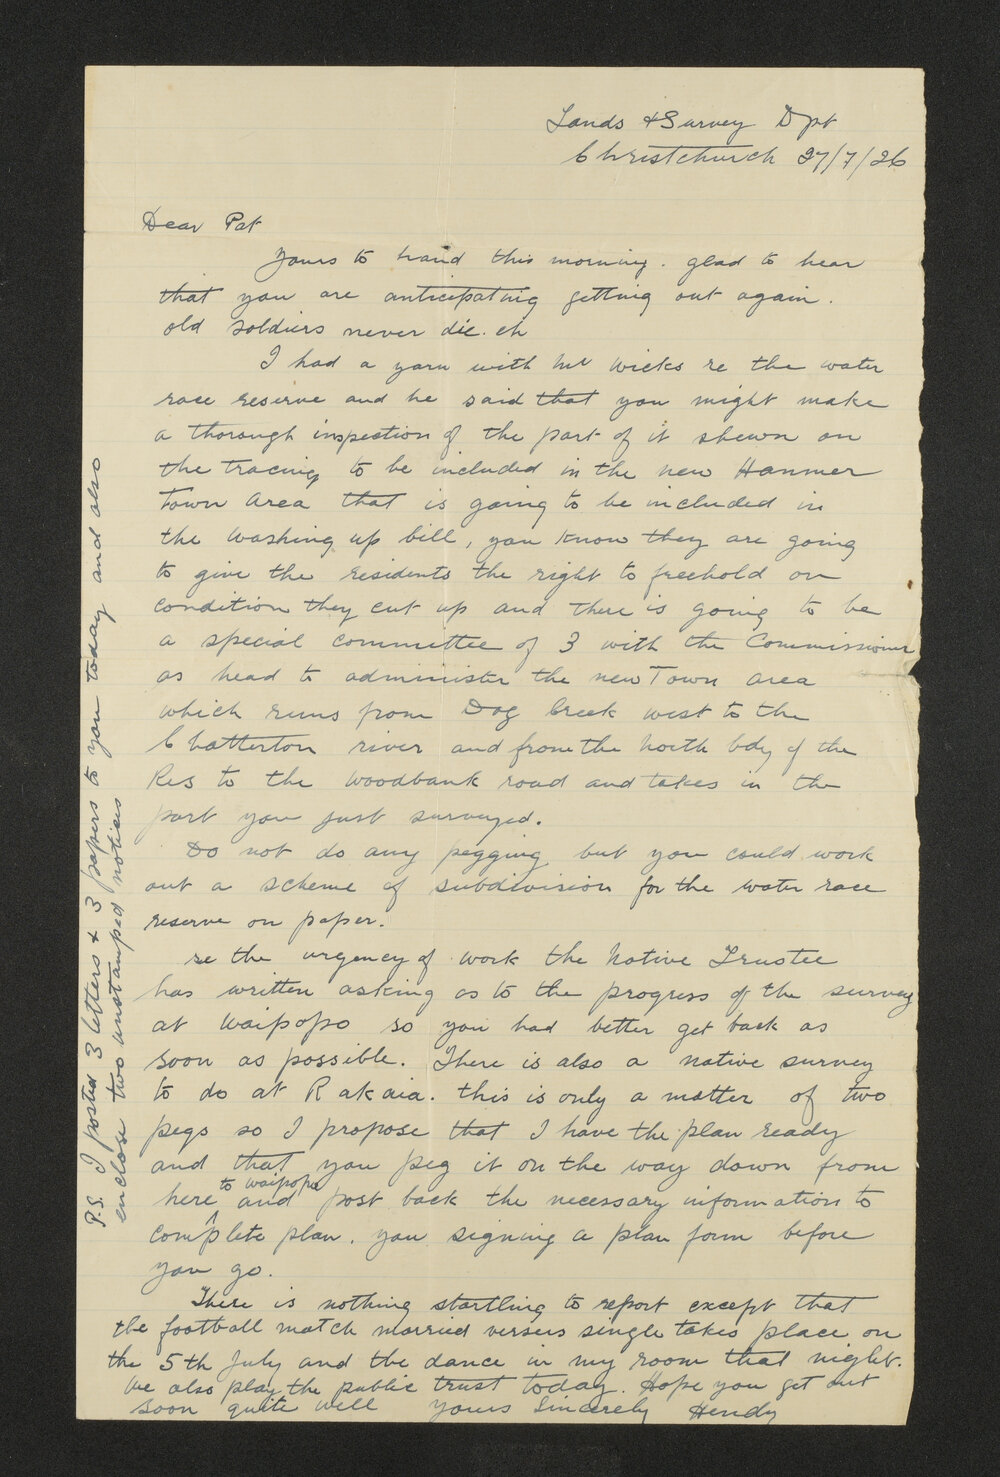 Lands & Survey Dpt
Christchurch 27/7/26
Dear Pat
Yours to hand this morning. glad to hear
that you are anticipating getting out again.
old soldiers never die. eh
I had a yarn with Mr Wicks re the water
race reserve and he said that you might make
a thorough inspection of the part of it shewn on
the tracing to be included in the new Hanmer
Town Area, that is going to be included in
the washing up bill, you know they are going
to give the residents the right to freehold on
condition they cut up and there is going to be
a special committee of 3 with the Commissioner
as head to administer the new Town area
which runs from Dog Creek west to the
Chatterton river and from the North bdy of the
Res to the Woodbank road and takes in the
part you just surveyed.
Do not do any pegging but you could work
out a scheme of subdivision for the water race
reserve on paper.
re the urgency of work the Native Trustee
has written asking as to the progress of the survey
at Waipopo so you had better get back as
soon as possible. There is also a native survey
to do at Rakaia. this is only a matter of two
pegs so I propose that I have the plan ready
and that you peg it on the way down from
here ^ to waipopo and post back the necessary information to
complete plan. you signing a plan form before
you go.
There is nothing startling to report except that
the football match married versus single takes place on
the 5th July and the dance in my room that night.
We also play the public trust today. Hope you get out
soon quite well Yours Sincerely Hendy
P.S. I posted 3 letters & 3 papers to you today and also
enclose two unstamped notices